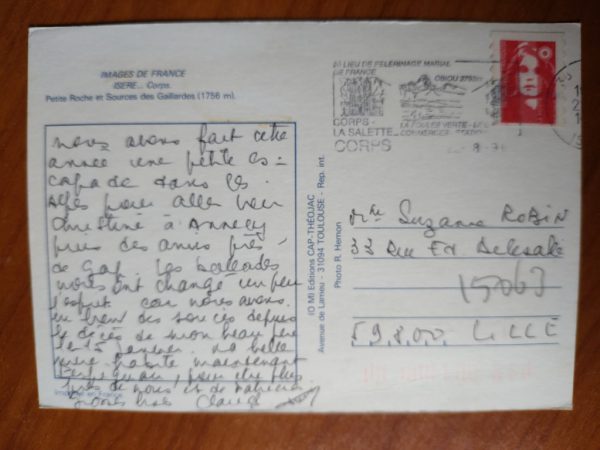 IMAGES DE FRANCE
ISERE... Corps.
Petite Roche et Sources des Gaillardes (1756 m).
nous avons fait cette
année une petite es=
capade dans les
Alpes pour aller voir
Christine à Annecy
puis des amis près
de Gap. Les ballades
nous ont changé un peu
l'esprit car nous avons
eu bien des soucis depuis
le décès de mon beau père
le 13 janvier. Ma belle
mère habite maintenant
pour être plus
près de nous et de
Bons baisers Claude
Imprimé en France
IO Mi Editions CAP-THEOJAC
Avenue de Larrieu - 31094 TOULOUSE - Rep. int.
Photo R. Hemon
LIEU DE PELERINAGE MARIAL
DE FRANCE
OBIOU 2793m
CORPS -
LA SALETTE
CORPS
Mme Suzanne ROBIN
33 Rue Ed. Delesalle
15063
59800 LILLE